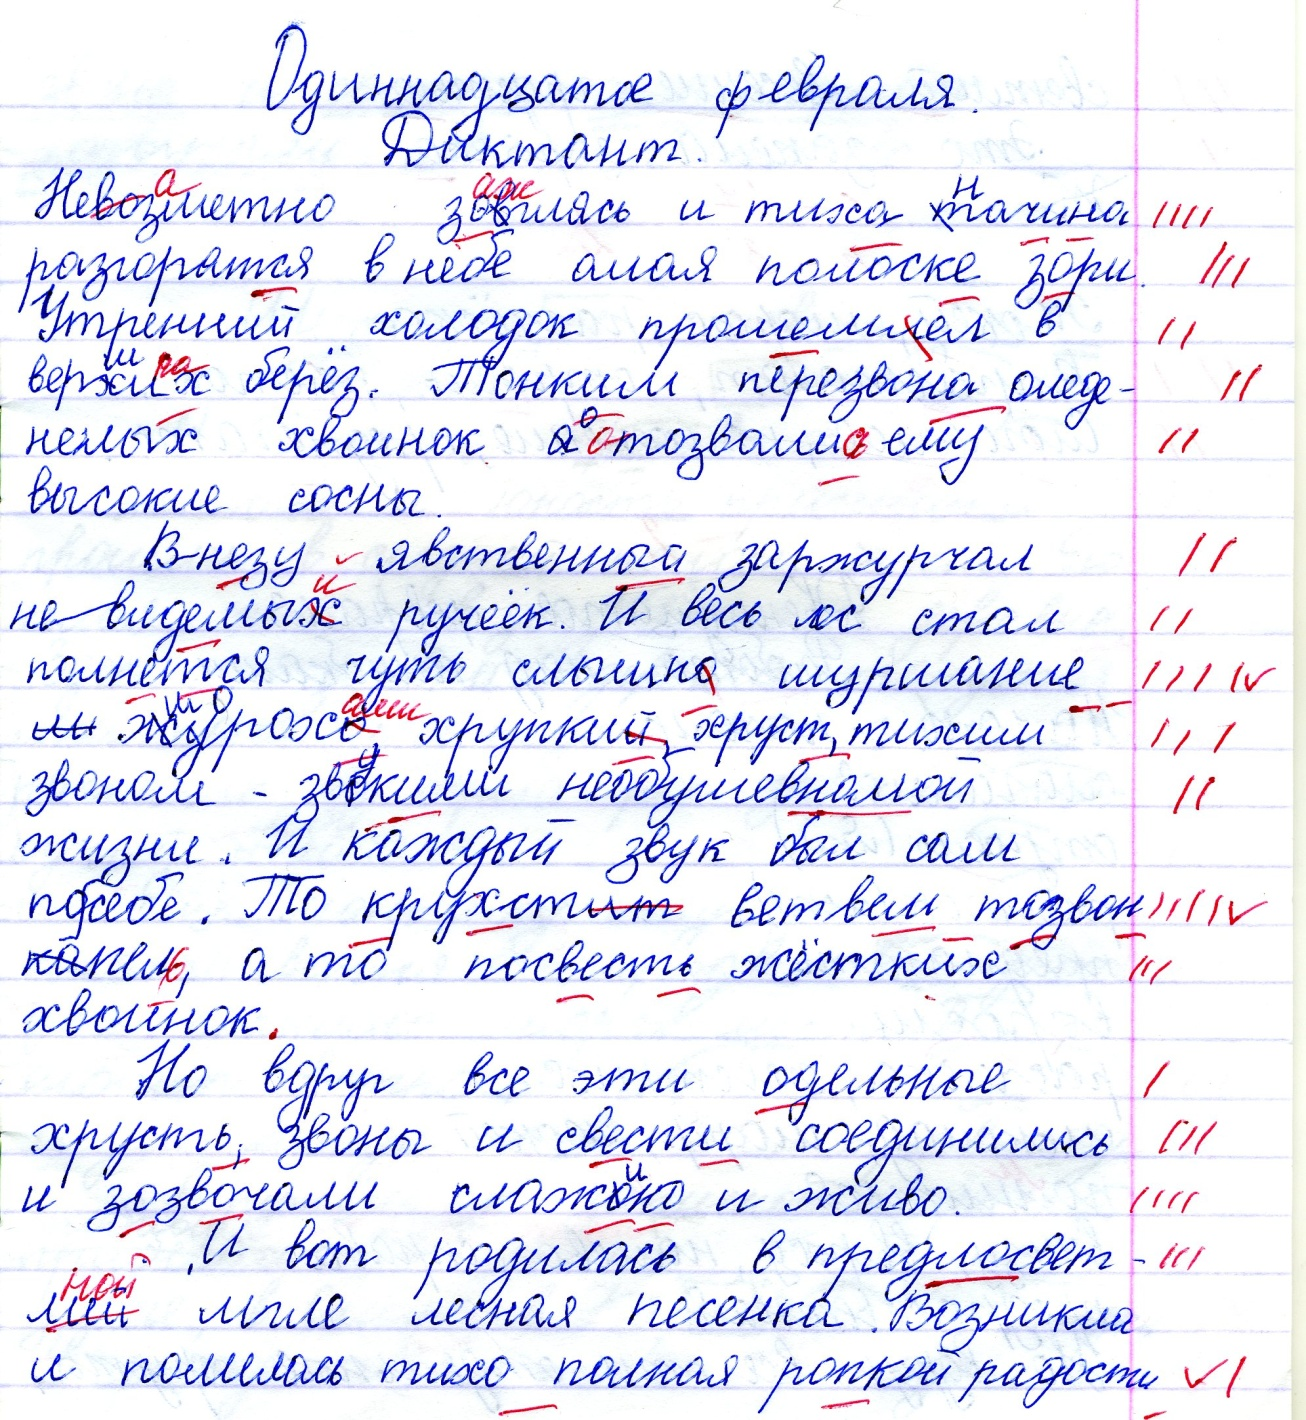 Одиннадцатое февраля.
Диктант.
Невозметно и тиха начина
разгоратся в небе алая полоске зори.
Утренний холодок прошемлел в
берёз. Тонким перезвона оледе-
нелых хвоинок отозвались ему
высокие сосны.
В незу явственный заржурчал
не видемый ручеёк. И весь лес стал
полнется чуть слышно шуршание
хрупкий хруст, тихим
звоном - звукими необушевнамой
жизни. И каждый звук был сам
посебе. То крухст ветвем тозвон
капель, а то посвесть жёстких
хвоинок.
Но вдруг все эти одельные
хрусть, звоны и свести соединились
и зозвочали и живо.
И вот родилась в предлосвет-
ной мгле лесная песенка. Возникла
и полилась тихо полная ропкой радости